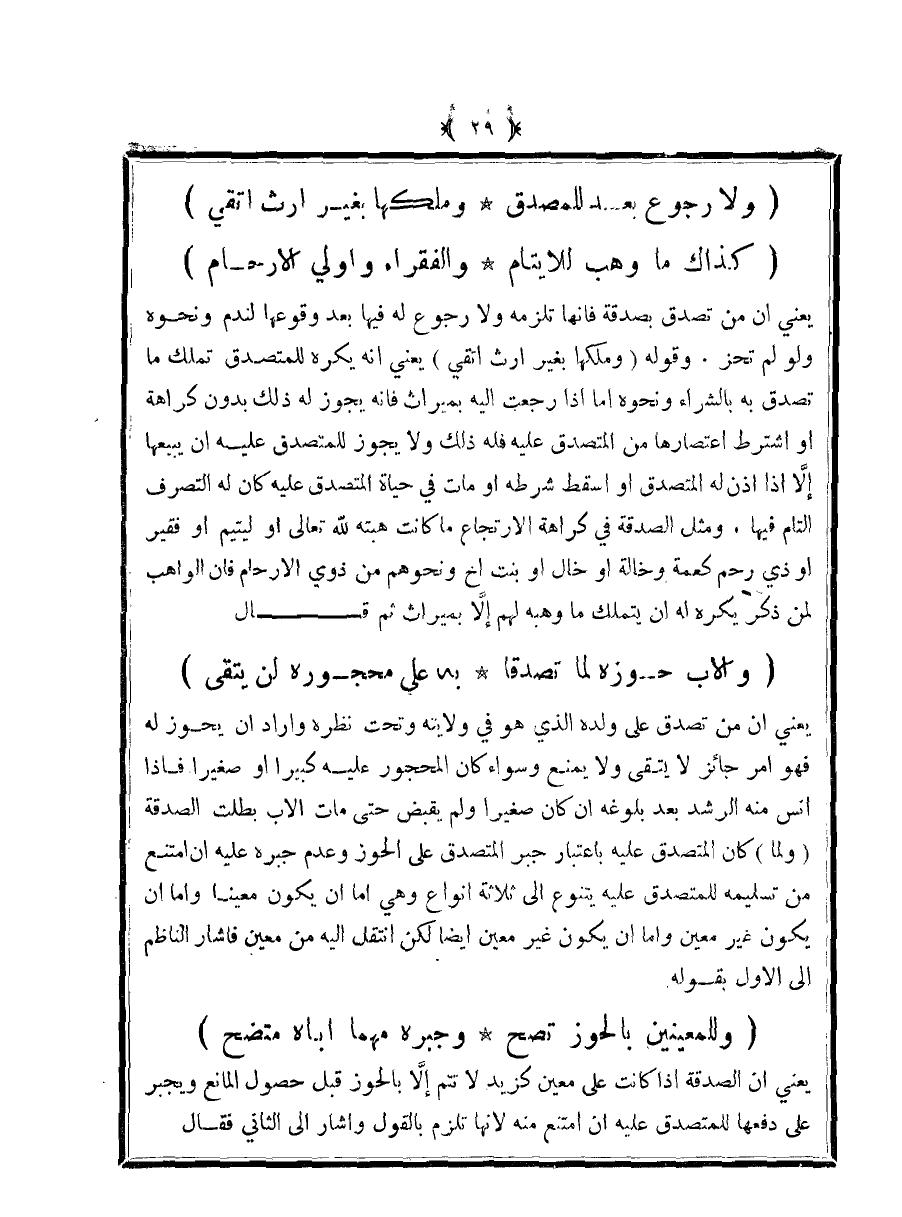 ﴿ ٢٩ ﴾
( ولا رجوع بعـــد للمصدق * وملكها بغيــر ارث اتقي )
( كذاك ما وهب للايتام * والفقراء واولي الارحــام )
يعني ان من تصدق بصدقة فانها تلزمه ولا رجوع له فيها بعد وقوعها لندم ونحــوه
ولو لم تحز . وقوله ( وملكها بغير ارث اتقي ) يعني انه يكره للمتصــدق تملك ما
تصدق به بالشراء ونحوه اما اذا رجعت اليه بميراث فانه يجوز له ذلك بدون كراهة
او اشترط اعتصارها من المتصدق عليه فله ذلك ولا يجوز للمتصدق عليــه ان يبيعها
إلَّا اذا اذن له المتصدق او اسقط شرطه او مات في حياة المتصدق عليه كان له التصرف
التام فيها . ومثل الصدقة في كراهة الارتجاع ما كانت هبته لله تعالى او ليتيم او فقير
او ذي رحم كعمة وخالة او خال او بنت اخ ونحوهم من ذوي الارحام فان الواهب
لمن ذكر يكره له ان يتملك ما وهبه لهم إلَّا بميراث ثم قـــــــــال
( والاب حــوزه لما تصدقا * به على محجــوره لن يتقى )
يعني ان من تصدق على ولده الذي هو في ولايته وتحت نظره واراد ان يحــوز له
فهو امر جائز لا يتـقى ولا يمنـع وسواء كان المحجور عليــه كبيرا او صغيرا فــاذا
انس منه الرشد بعد بلوغه ان كان صغيرا ولم يقبض حتى مات الاب بطلت الصدقة
( ولما ) كان المتصدق عليه باعتبار جبر المتصدق على الحوز وعدم جبره عليه ان امتنـع
من تسليمه للمتصدق عليه يتنوع الى ثلاثة انواع وهي اما ان يكون معينــا واما ان
يكون غير معين واما ان يكون غير معين ايضا لكن انتقل اليه من معين فاشار الناظم
الى الاول بقــوله
( وللمعينين بالحوز تصح * وجبره مهما اباه متضح )
يعني ان الصدقة اذا كانت على معين كزيد لا تتم إلَّا بالحوز قبل حصول المانع ويجبر
على دفعها للمتصدق عليه ان امتنع منه لانها تلزم بالقول واشار الى الثاني فقــال